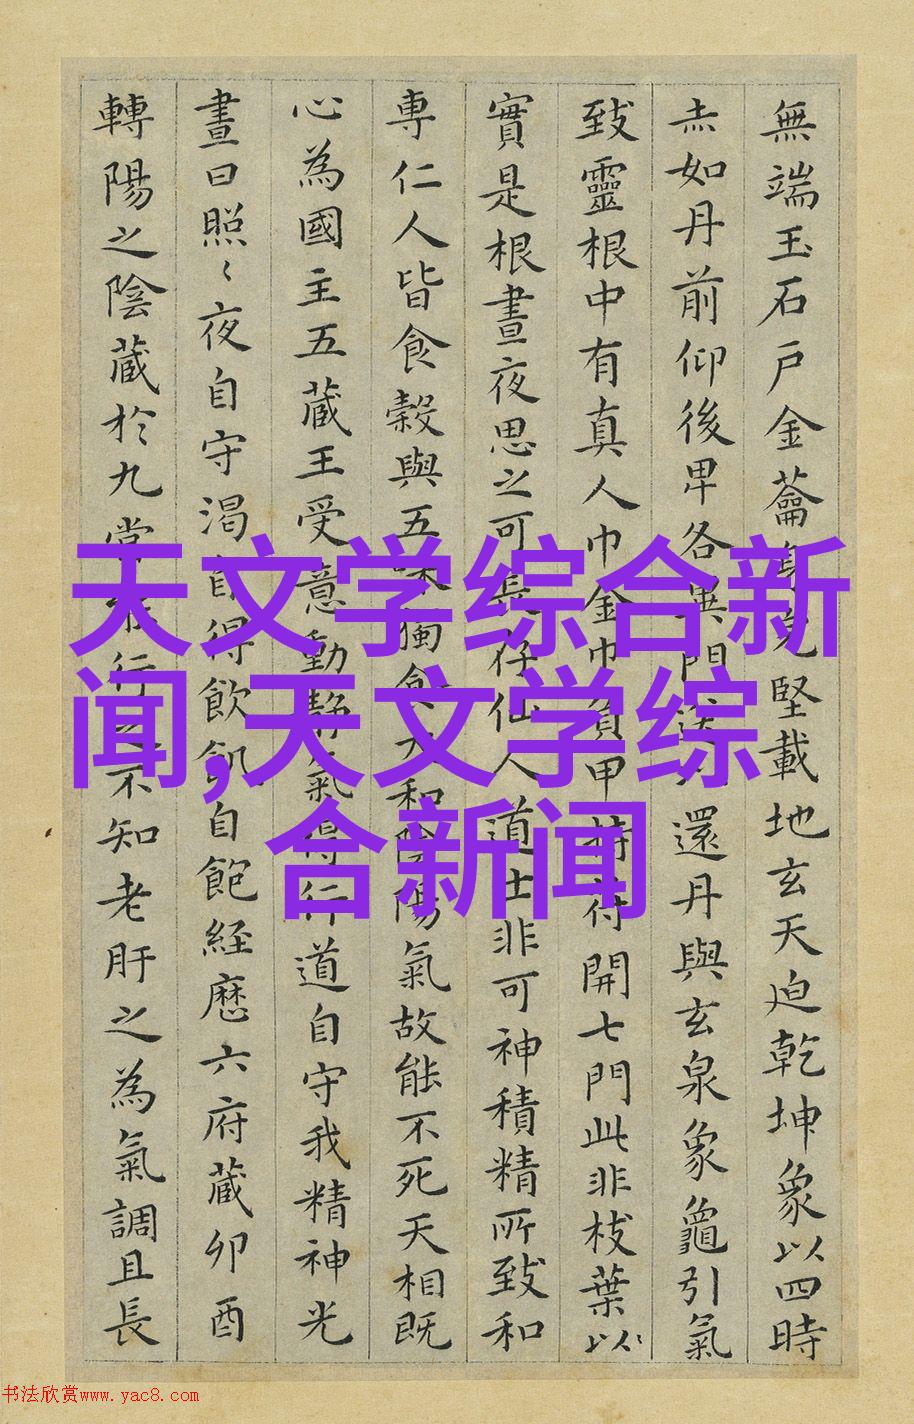 無端玉石戶金蘥身完堅載地玄天迫乾坤象以四時
赤如丹前仰後卑各異門送以還丹與玄泉象龜引氣
致靈根中有真人巾金巾負甲持符開七門此非枝葉以
實是根晝夜思之可長存仙人道士非可神積精所致和
專仁人皆食穀與五味獨食大和陰陽氣故能不死天相既
心為國主五藏王受意動靜氣得行道自守我精神光
晝日照〻夜自守渴自得飲飢自飽経歷六府藏卯酉
轉陽之陰藏於九常能行之不知老肝之為氣調且長
天文学综合新
闻,天文学综
合新闻
书法欣赏www.yac8.com